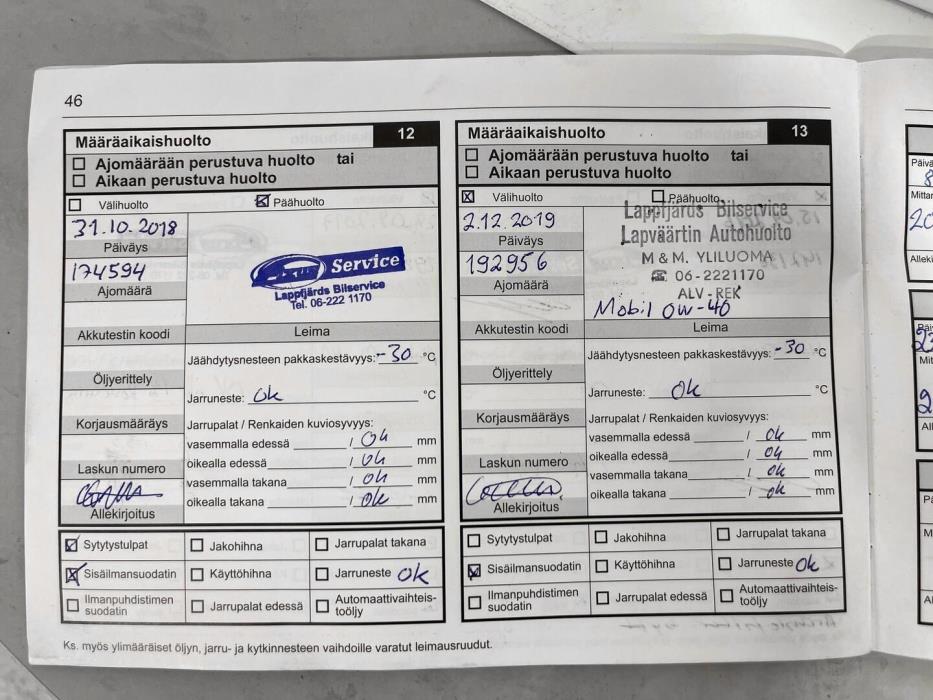 46
Määräaikaishuolto 12
Ajomäärään perustuva huolto tai
Aikaan perustuva huolto
Välihuolto Päähuolto
31.10.2018
Päiväys
174594
Ajomäärä
Service
Lappfjärds Bilservice
Tel. 06-222 1170
Akkutestin koodi
Leima
Öljyerittely
Jäähdytysnesteen pakkaskestävyys: -30 °C
Jarruneste: ok °C
Korjausmääräys
Jarrupalat / Renkaiden kuviosyvyys:
vasemmalla edessä / ok mm
oikealla edessä / ok mm
Laskun numero
vasemmalla takana / ok mm
oikealla takana / ok mm
Allekirjoitus
Sytytystulpat Jakohihna Jarrupalat takana
Sisäilmansuodatin Käyttöhihna Jarruneste ok
Ilmanpuhdistimen suodatin Jarrupalat edessä Automaattivaihteis-
tööljy
Määräaikaishuolto 13
Ajomäärään perustuva huolto tai
Aikaan perustuva huolto
Välihuolto Päähuolto
2.12.2019
Päiväys
192956
Ajomäärä
Lappfjärds Bilservice
Lapväärtin Autohuolto
M & M. YLILUOMA
☎ 06-2221170
ALV-REK
Mobil 0W-40
Akkutestin koodi
Leima
Öljyerittely
Jäähdytysnesteen pakkaskestävyys: -30 °C
Jarruneste: ok °C
Korjausmääräys
Jarrupalat / Renkaiden kuviosyvyys:
vasemmalla edessä / ok mm
oikealla edessä / ok mm
Laskun numero
vasemmalla takana / ok mm
oikealla takana / ok mm
Allekirjoitus
Sytytystulpat Jakohihna Jarrupalat takana
Sisäilmansuodatin Käyttöhihna Jarruneste ok
Ilmanpuhdistimen suodatin Jarrupalat edessä Automaattivaihteis-
tööljy
Ks. myös ylimääräiset öljyn, jarru- ja kytkinnesteen vaihdoille varatut leimausruudut.